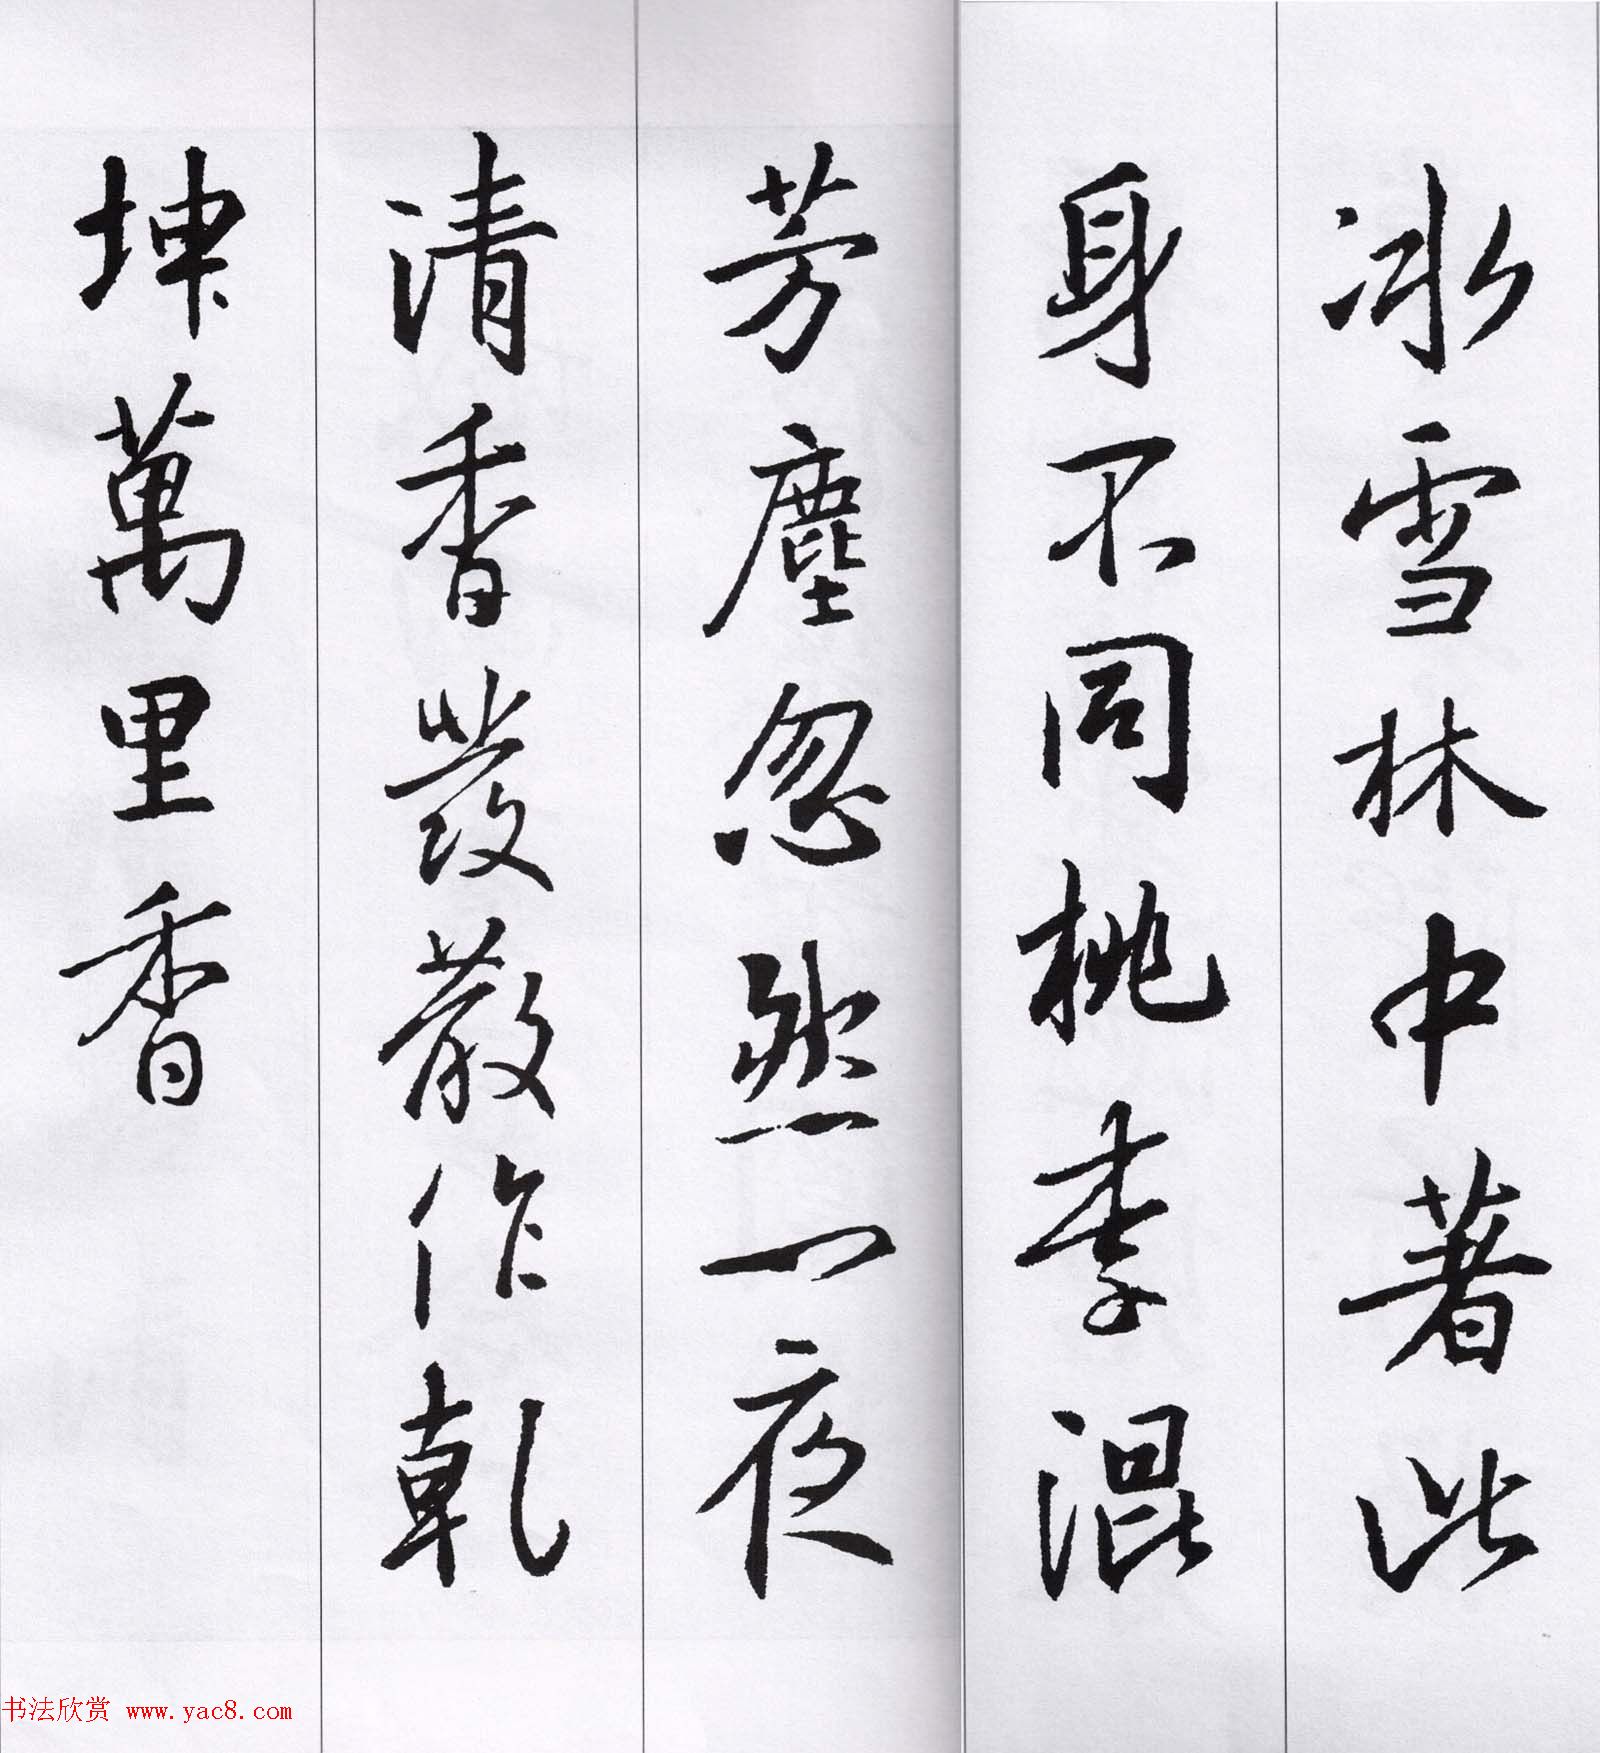 冰雪林中著此
身不同桃李混
芳塵忽然一夜
清香發散作乾
坤萬里香
书法欣赏 www.yac8.com